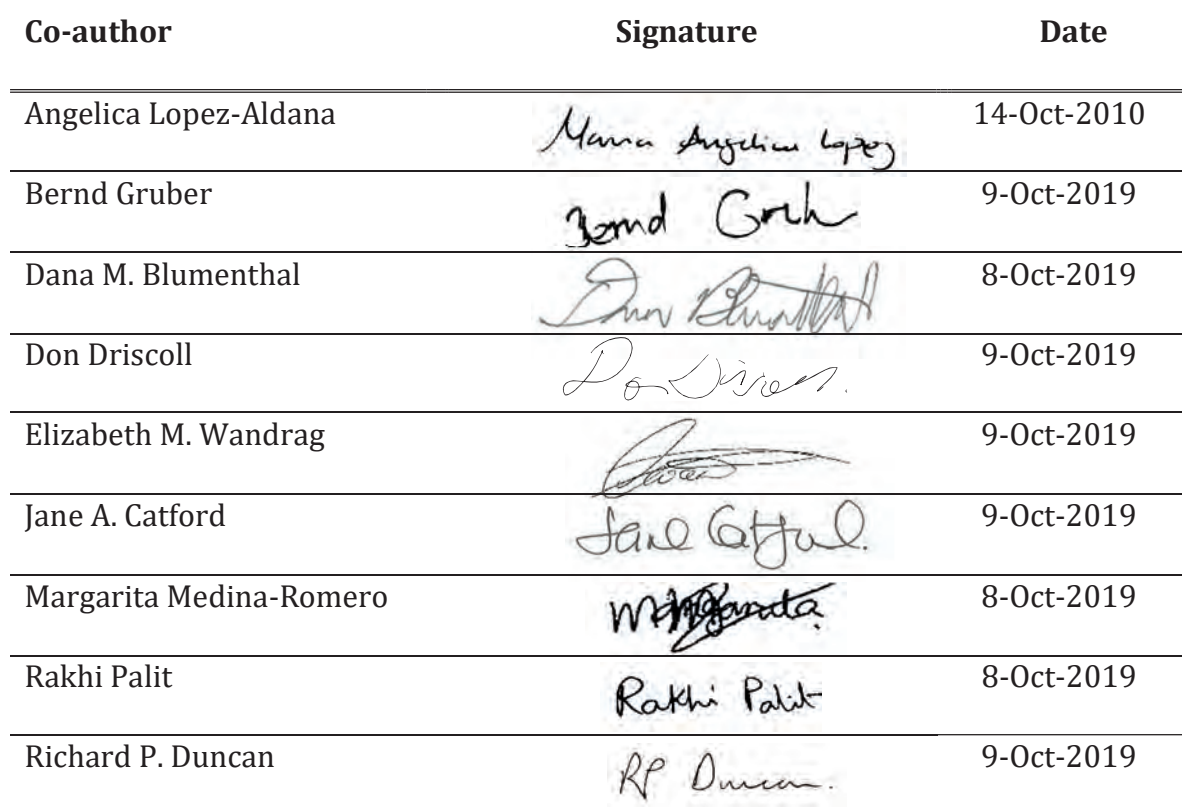 Co-author Signature Date
Angelica Lopez-Aldana Maria Angelica Lopez 14-Oct-2010
Bernd Gruber Bernd 9-Oct-2019
Dana M. Blumenthal 8-Oct-2019
Don Driscoll Don 9-Oct-2019
Elizabeth M. Wandrag 9-Oct-2019
Jane A. Catford Jane Catford. 9-Oct-2019
Margarita Medina-Romero 8-Oct-2019
Rakhi Palit Rakhi Palit 8-Oct-2019
Richard P. Duncan RP Duncan. 9-Oct-2019